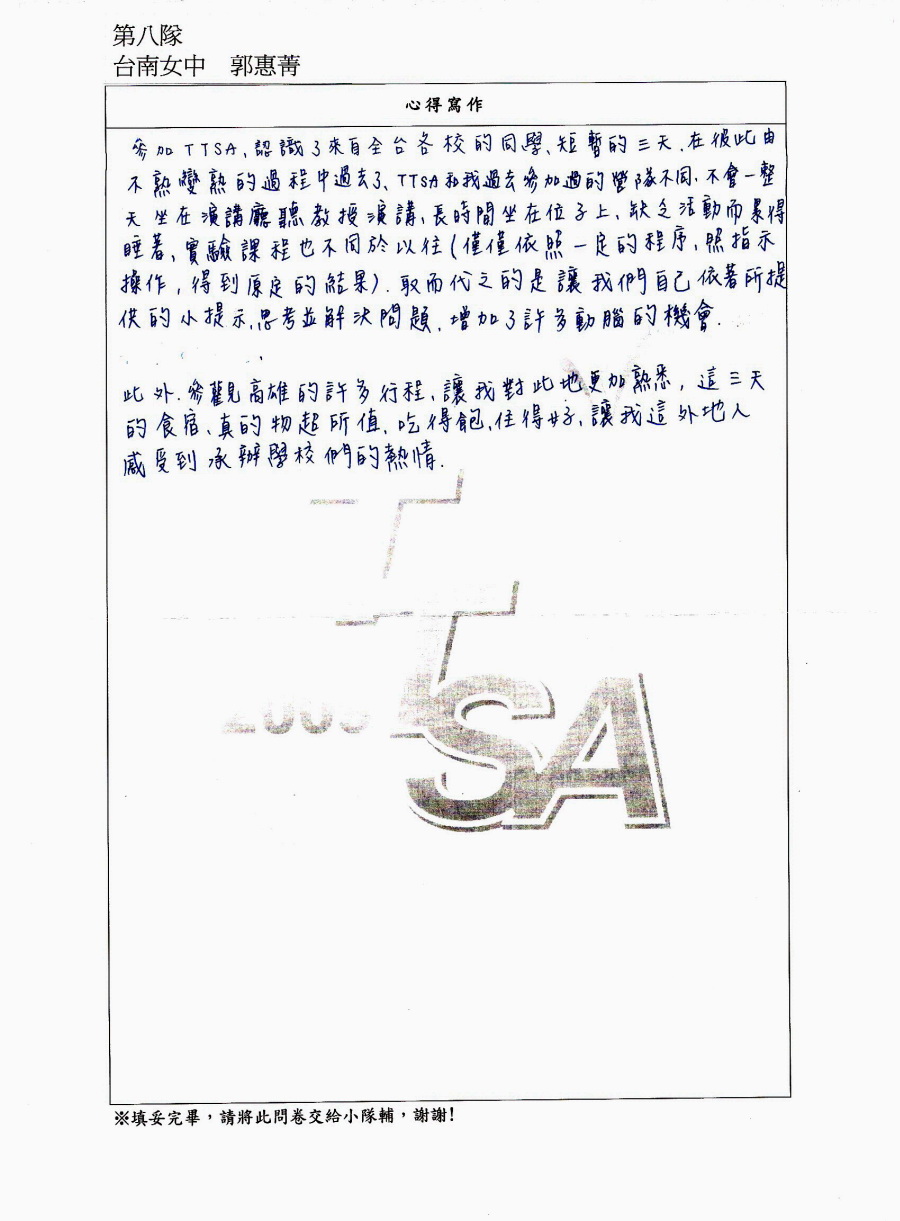 第八隊
台南女中 郭惠菁
心得寫作
參加TTSA,認識了來自全台各校的同學、短暫的三天,在彼此由
不熟變熟的過程中過去了、TTSA和我過去參加過的營隊不同,不會一整
天坐在演講廳聽教授演講、長時間坐在位子上、缺乏活動而累得
睡著、實驗課程也不同於以往(僅僅依照一定的程序、照指示
操作,得到原定的結果).取而代之的是讓我們自己依著所提
供的小提示,思考並解決問題,增加了許多動腦的機會.
此外,參觀高雄的許多行程,讓我對此地更加熟悉,這三天
的食宿、真的物超所值,吃得飽,住得好,讓我這外地人
感受到承辦學校們的熱情.
T
T
2005
SA
※填妥完畢,請將此問卷交給小隊輔,謝謝!